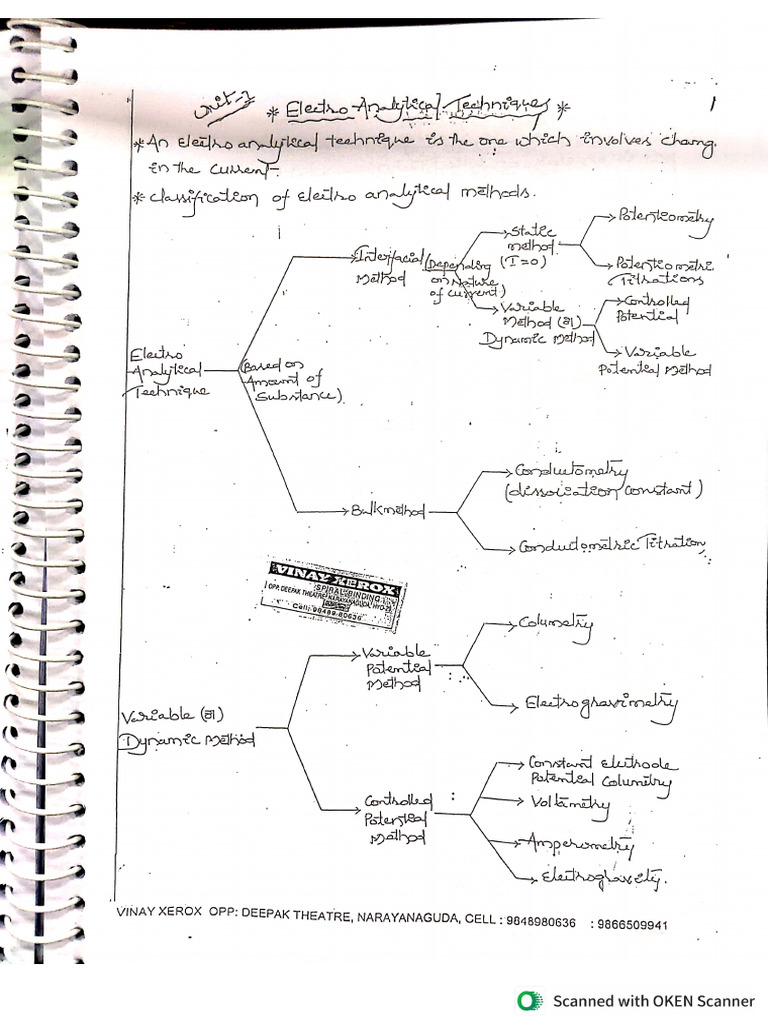 Unit-2
* Electro-Analytical Techniques *
1
* An Electro analytical technique is the one which involves chang.
in the current-
* Classification of Electro analytical methods.
Electro
Analytical
Technique
(Based on
Amount of
Substance)
Interfacial
Method
(Depending
on Nature
of current)
Static
method
(I=0)
Potentiometry
Potentiometric
Titrations
Variable
Method (or)
Dynamic Method
Controlled
Potential
Variable
Potential Method
Bulk method
Conductometry
(dissociation constant)
Conductometric Titration
VINAY XEROX
SPIRAL BINDING
OPP. DEEPAK THEATRE, NARAYANAGUDA, HYD-29
Cell: 98489-80636
Variable (or)
Dynamic Method
Variable
Potential
Method
Columetry
Electrogravimetry
Controlled
Potential
Method
Constant electrode
Potential Columetry
Voltametry
Amperometry
Electrogravity.
VINAY XEROX OPP: DEEPAK THEATRE, NARAYANAGUDA, CELL : 9848980636 : 9866509941
Scanned with OKEN Scanner